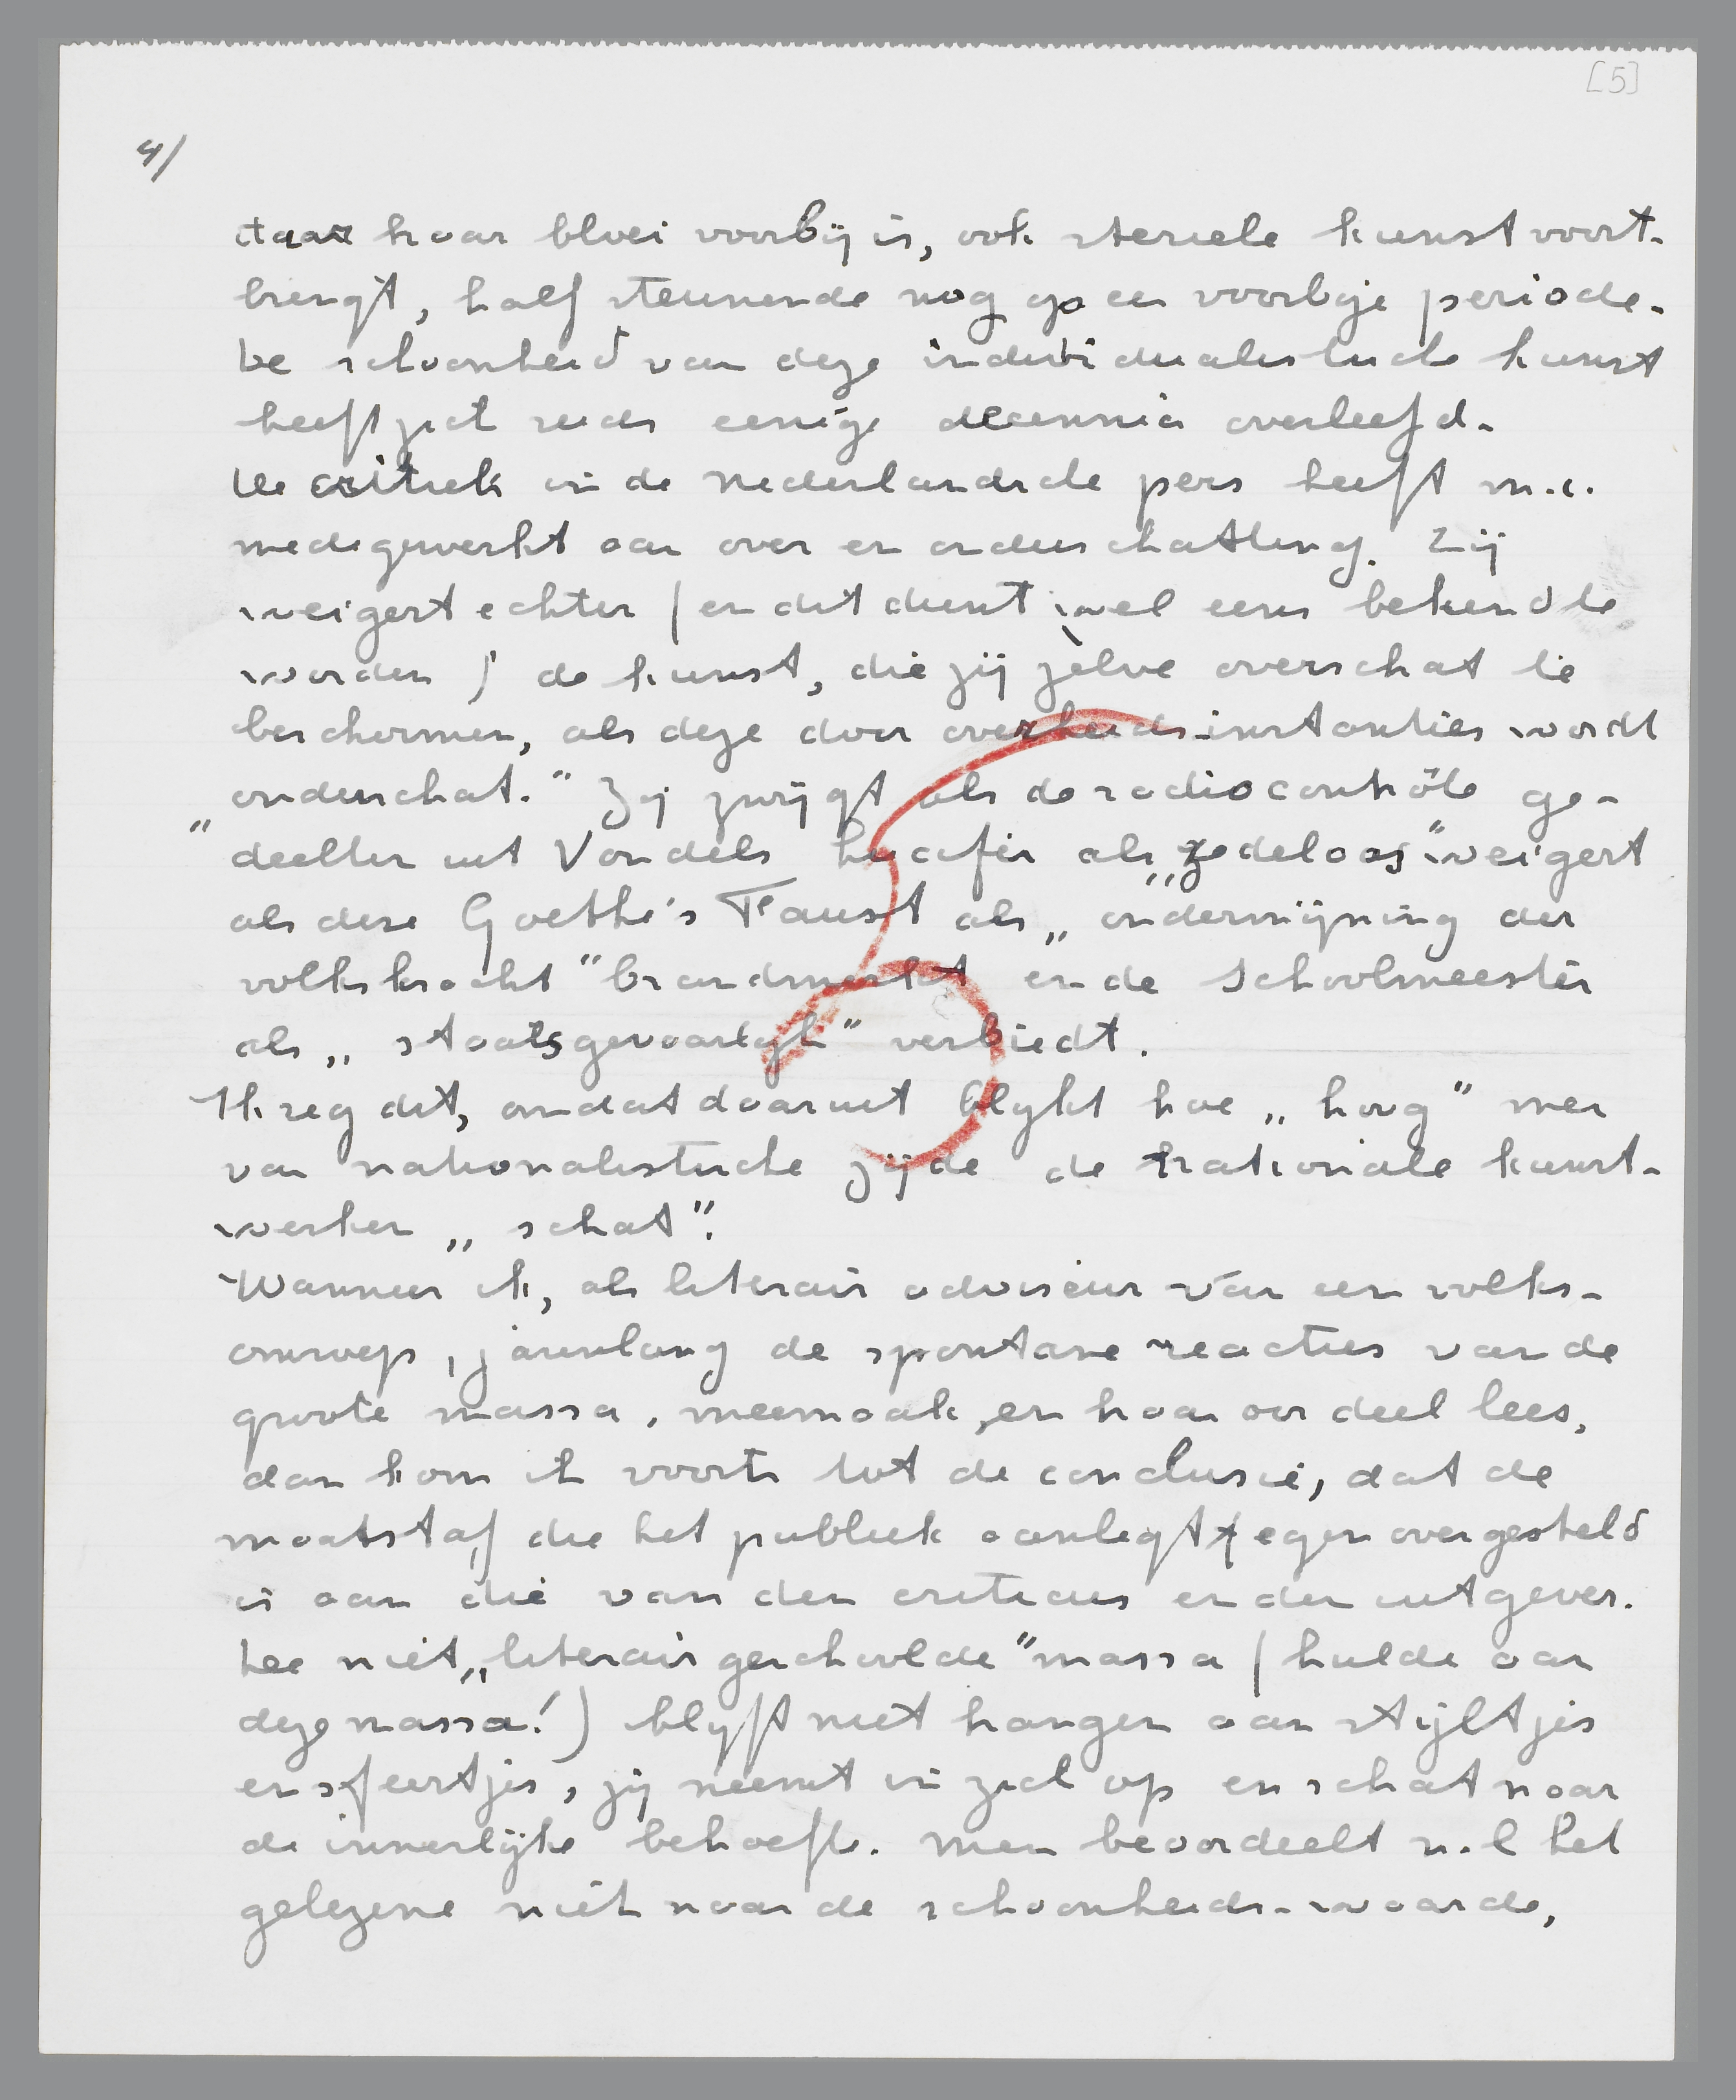 [5]
4/
daar haar bloei voorbij is, ook steriele kunst voort-
brengt, half steunende nog op een voorbije periode.
De schoonheid van deze individualistische kunst
heeft zich reeds eenige decennia overleefd.
De critiek in de Nederlandsche pers heeft m.i.
medegewerkt aan over en onderschatting. Zij
weigert echter (en dit dient wel eens bekend te
worden) de kunst, die zij zelve overschat te
beschermen, als deze door overheids-instanties wordt
„onderschat." Zij zwijgt als de radiocontrôle ge-
deelten uit Vondels Lucifer als „zedeloos" weigert
als deze Goethe's Faust als „ondermijning der
volkskracht" brandmerkt en de Schoolmeester
als „staatsgevaarlijk" verbiedt.
Ik zeg dit, omdat daaruit blijkt hoe „hoog" men
van nationalistische zijde de nationale kunst-
werken „schat".
Wanneer ik, als literair adviseur van een volks-
omroep, jarenlang de spontane reacties van de
groote massa, meemaak, en haar oordeel lees,
dan kom ik voorts tot de conclusie, dat de
maatstaf die het publiek aanlegt tegenovergesteld
is aan die van den criticus en den uitgever.
De niet „literair geschoolde" massa (hulde aan
deze massa!) blijft niet hangen aan stijltjes
en sfeertjes, zij neemt in zich op en schat naar
de innerlijke behoefte. Men beoordeelt n.l het
gelezene niet naar de schoonheids-waarde,